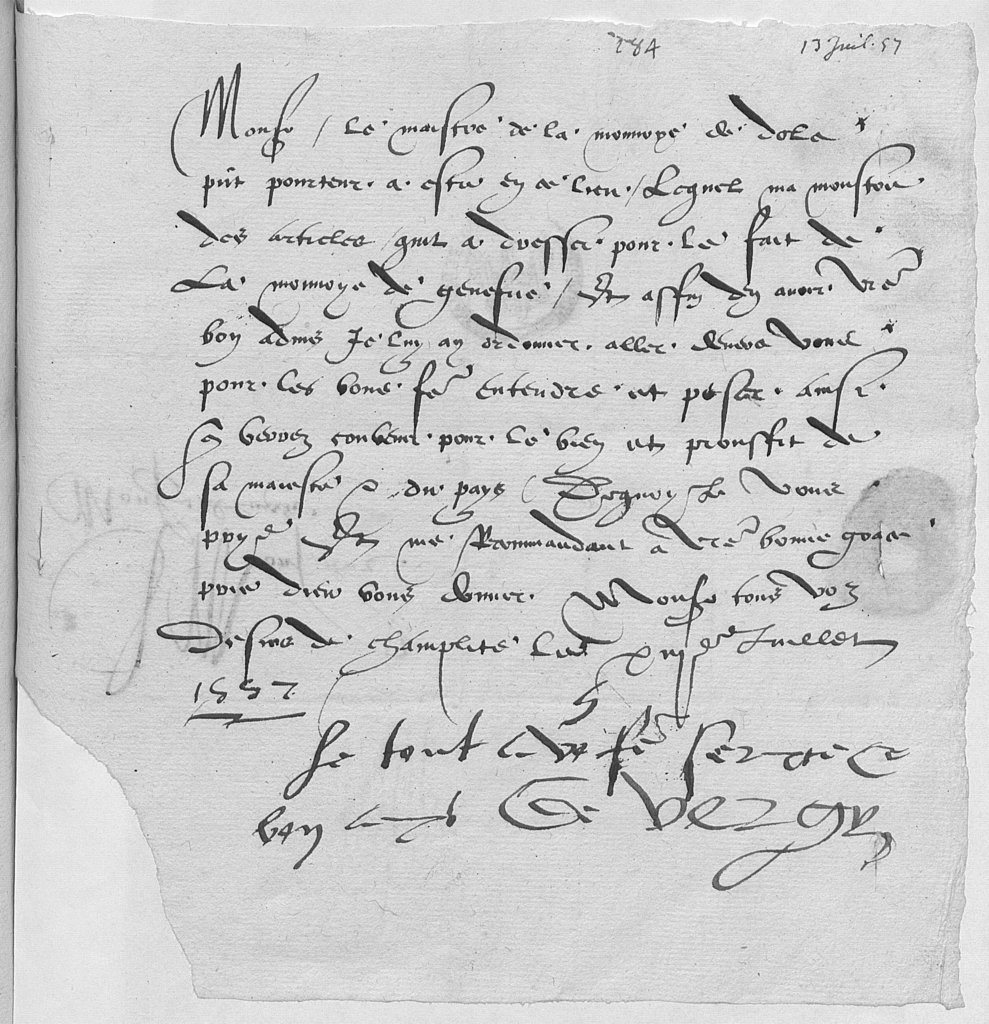 284
13 Juil. 57
Monsr / le maistre de la monnoye de dole
pñt pourteur. a este en ce lieu / Lequel ma monstre
des articles / quil a dresser. pour. le fait de
La monnoye de genefve / Et affin den avoir vre
bon advis Je luy ay ordonner. aller. devers vous
pour. les vous. fe entendre. et peser. ainsi.
verrez convenir. pour. le bien et prouffit de
sa maieste & du pays / Dequoy / Je vous
prye Et me Recommandant a vre bonne grace
prie dieu vous donner. Monsr tous voz
Desirs de champlite Le xiije Juillet
1557
le tout
bon Vergy